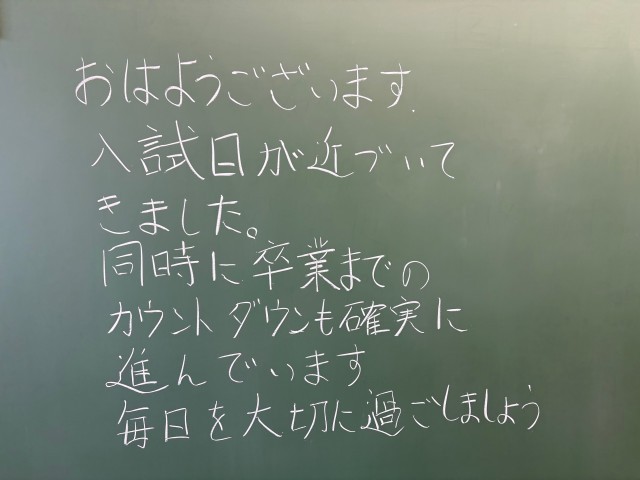 おはようございます.
入試日が近づいて
きました。
同時に卒業までの
カウントダウンも確実に
進んでいます
毎日を大切に過ごしましょう